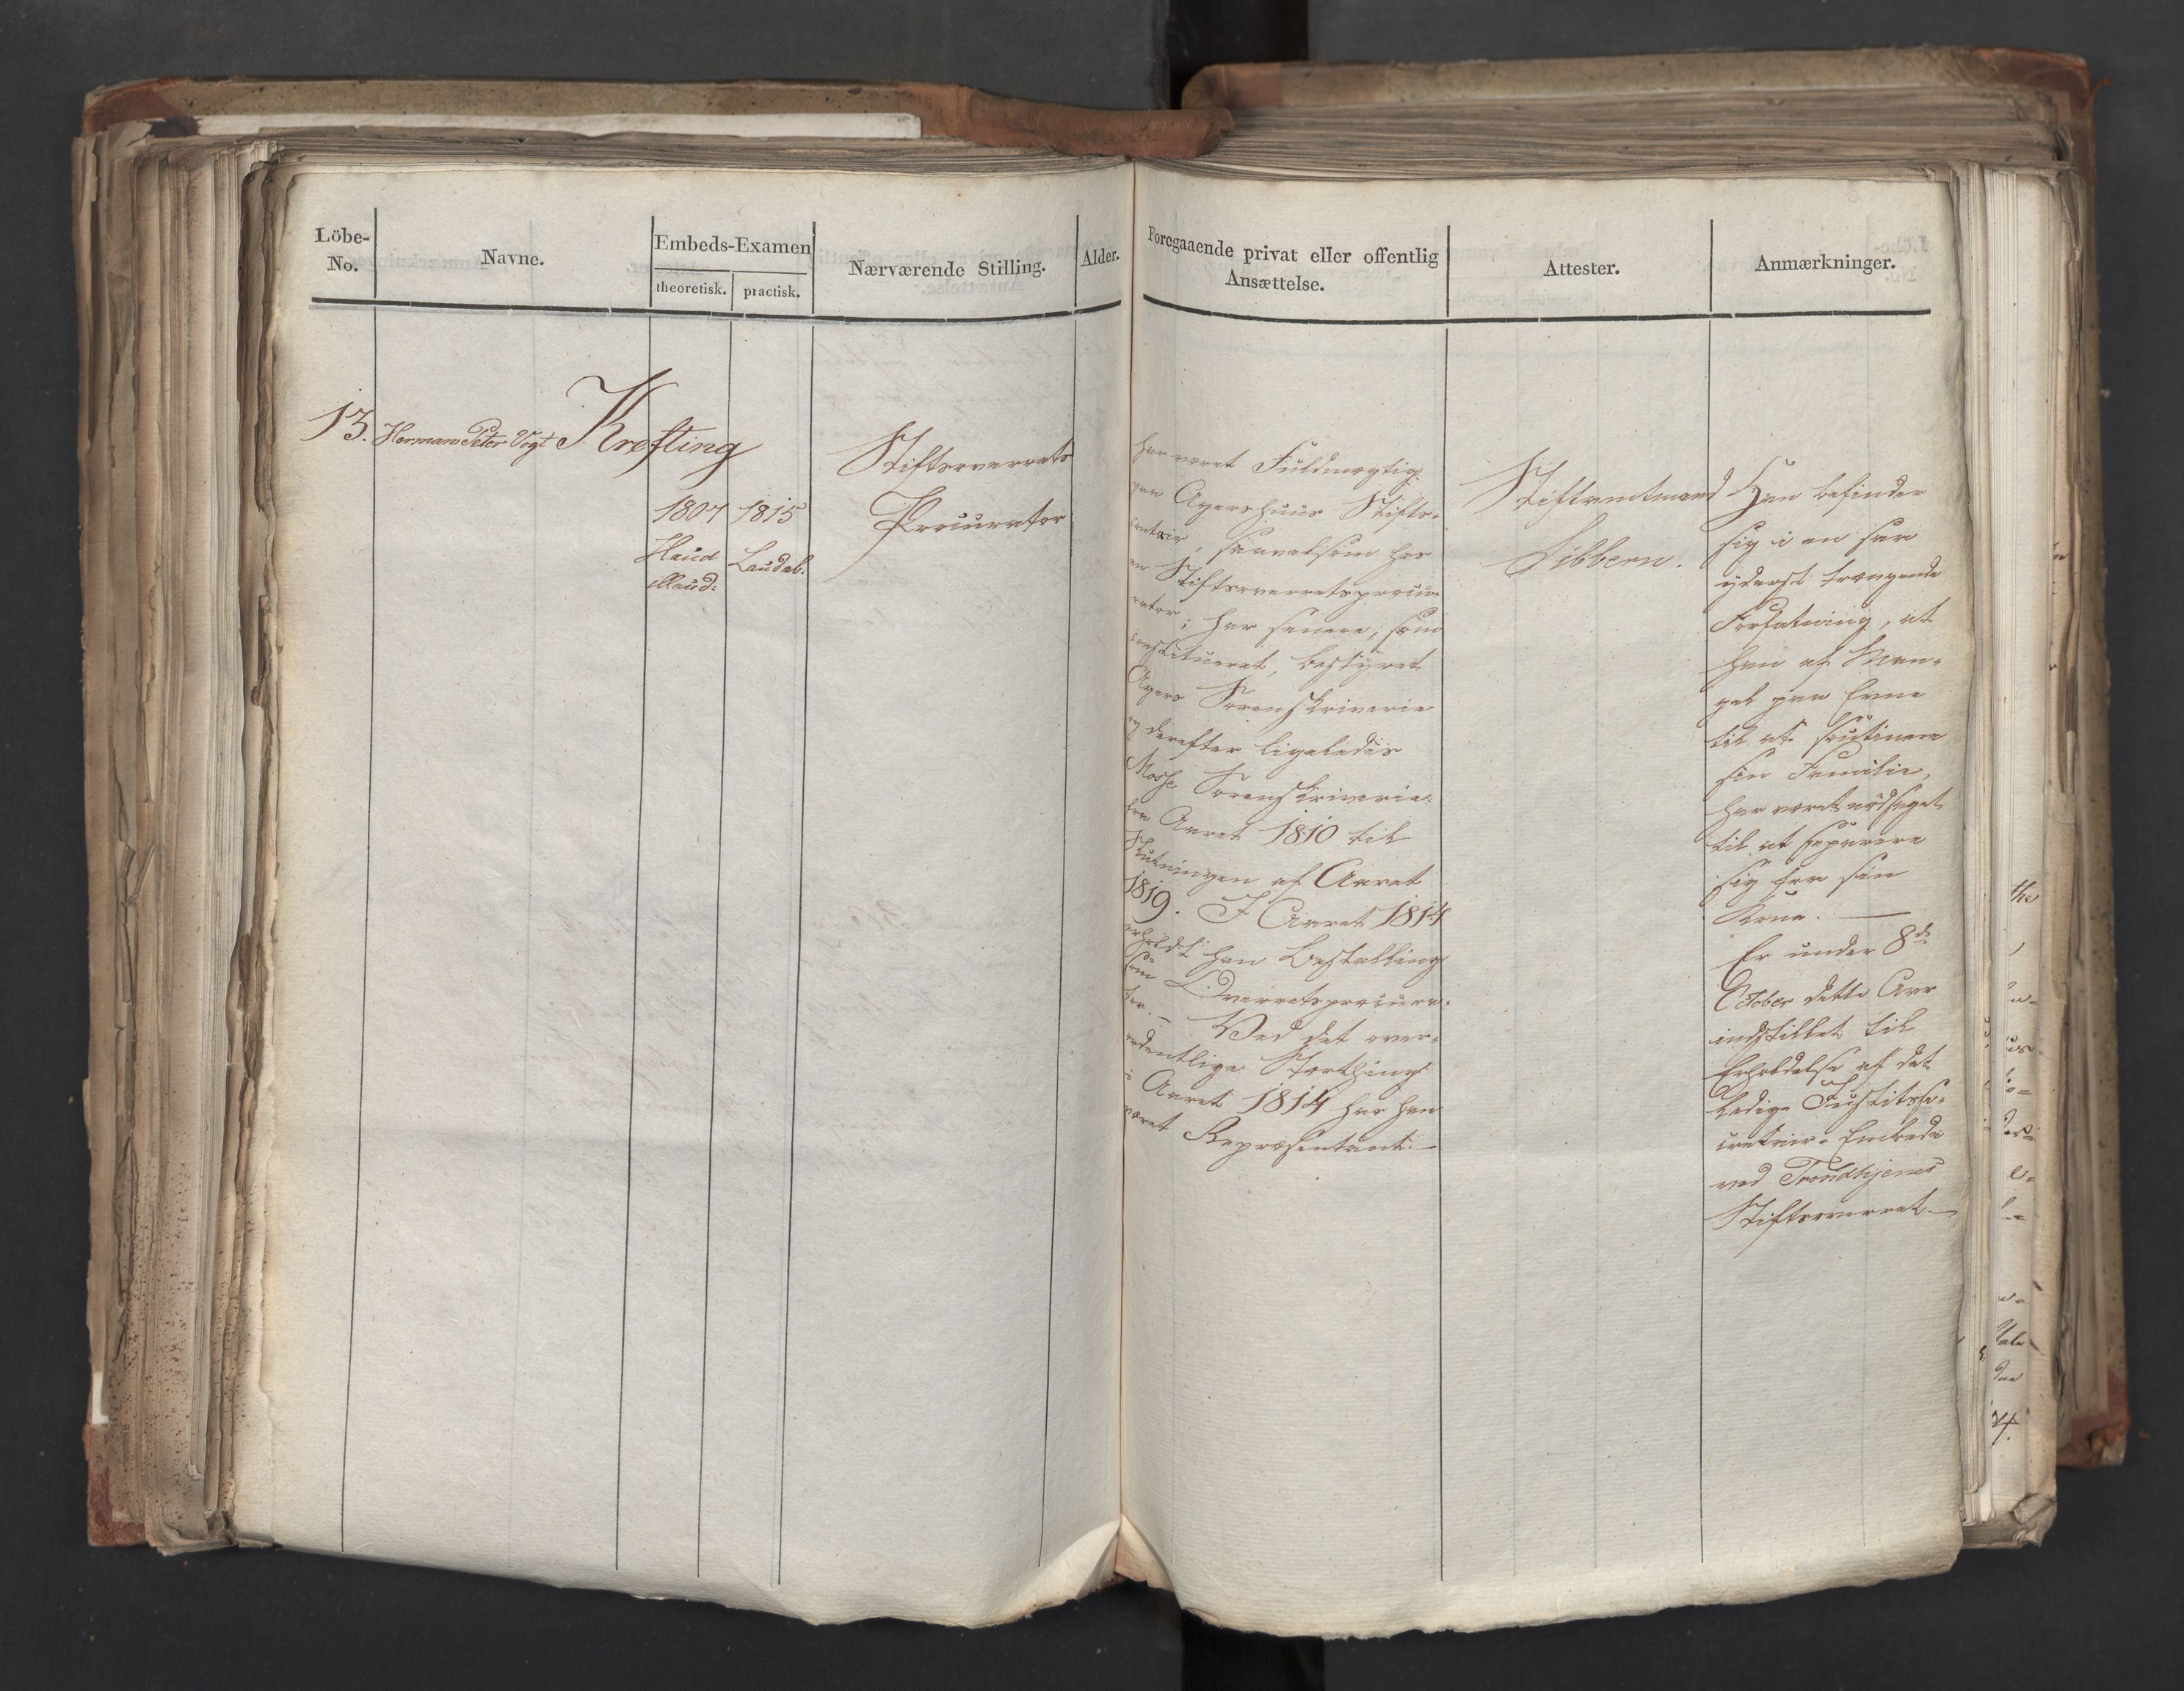 Löbe-
No.
Navne.
Embeds-Examen
theoretisk.
practisk.
Nærværende Stilling.
Alder.
Foregaaende privat eller offentlig
Ansættelse.
Attester.
Anmærkninger.
13. Herman Peter Vogt Krefting
1807 1815
Haud Laudab:
illaud:
Stiftsoverrets
Procurator
har været Fuldmægtig
paa Agershuus Stifts-
contoir, saavelsom hos
en Stiftsoverretsprocu-
rator; har senere, som
constitueret, bestyret
Agers Sorenskriverie
og derefter ligeledes
Moss Sorenskriverie
fra Aaret 1810 til
Slutningen af Aaret
1819. I Aaret 1814
erholdt han Bestalling
som Overretsprocura-
tor. – Ved det over-
ordentlige Storthing
i Aaret 1814 har han
været Repræsentant. –
Stiftamtmand
Sibbern.
Han befinder
sig i en saa
yderst trængende
Forfatning, at
han af Man-
gel paa Evne
til at soutinere
sin Familie,
har været nødsaget
til at separere
sig fra sin
Kone. —
Er under 8de
October dette Aar
indstillet til
Erholdelse af det
ledige Justitsse-
cretair-Embede
ved Trondhjems
Stiftsoverret. —